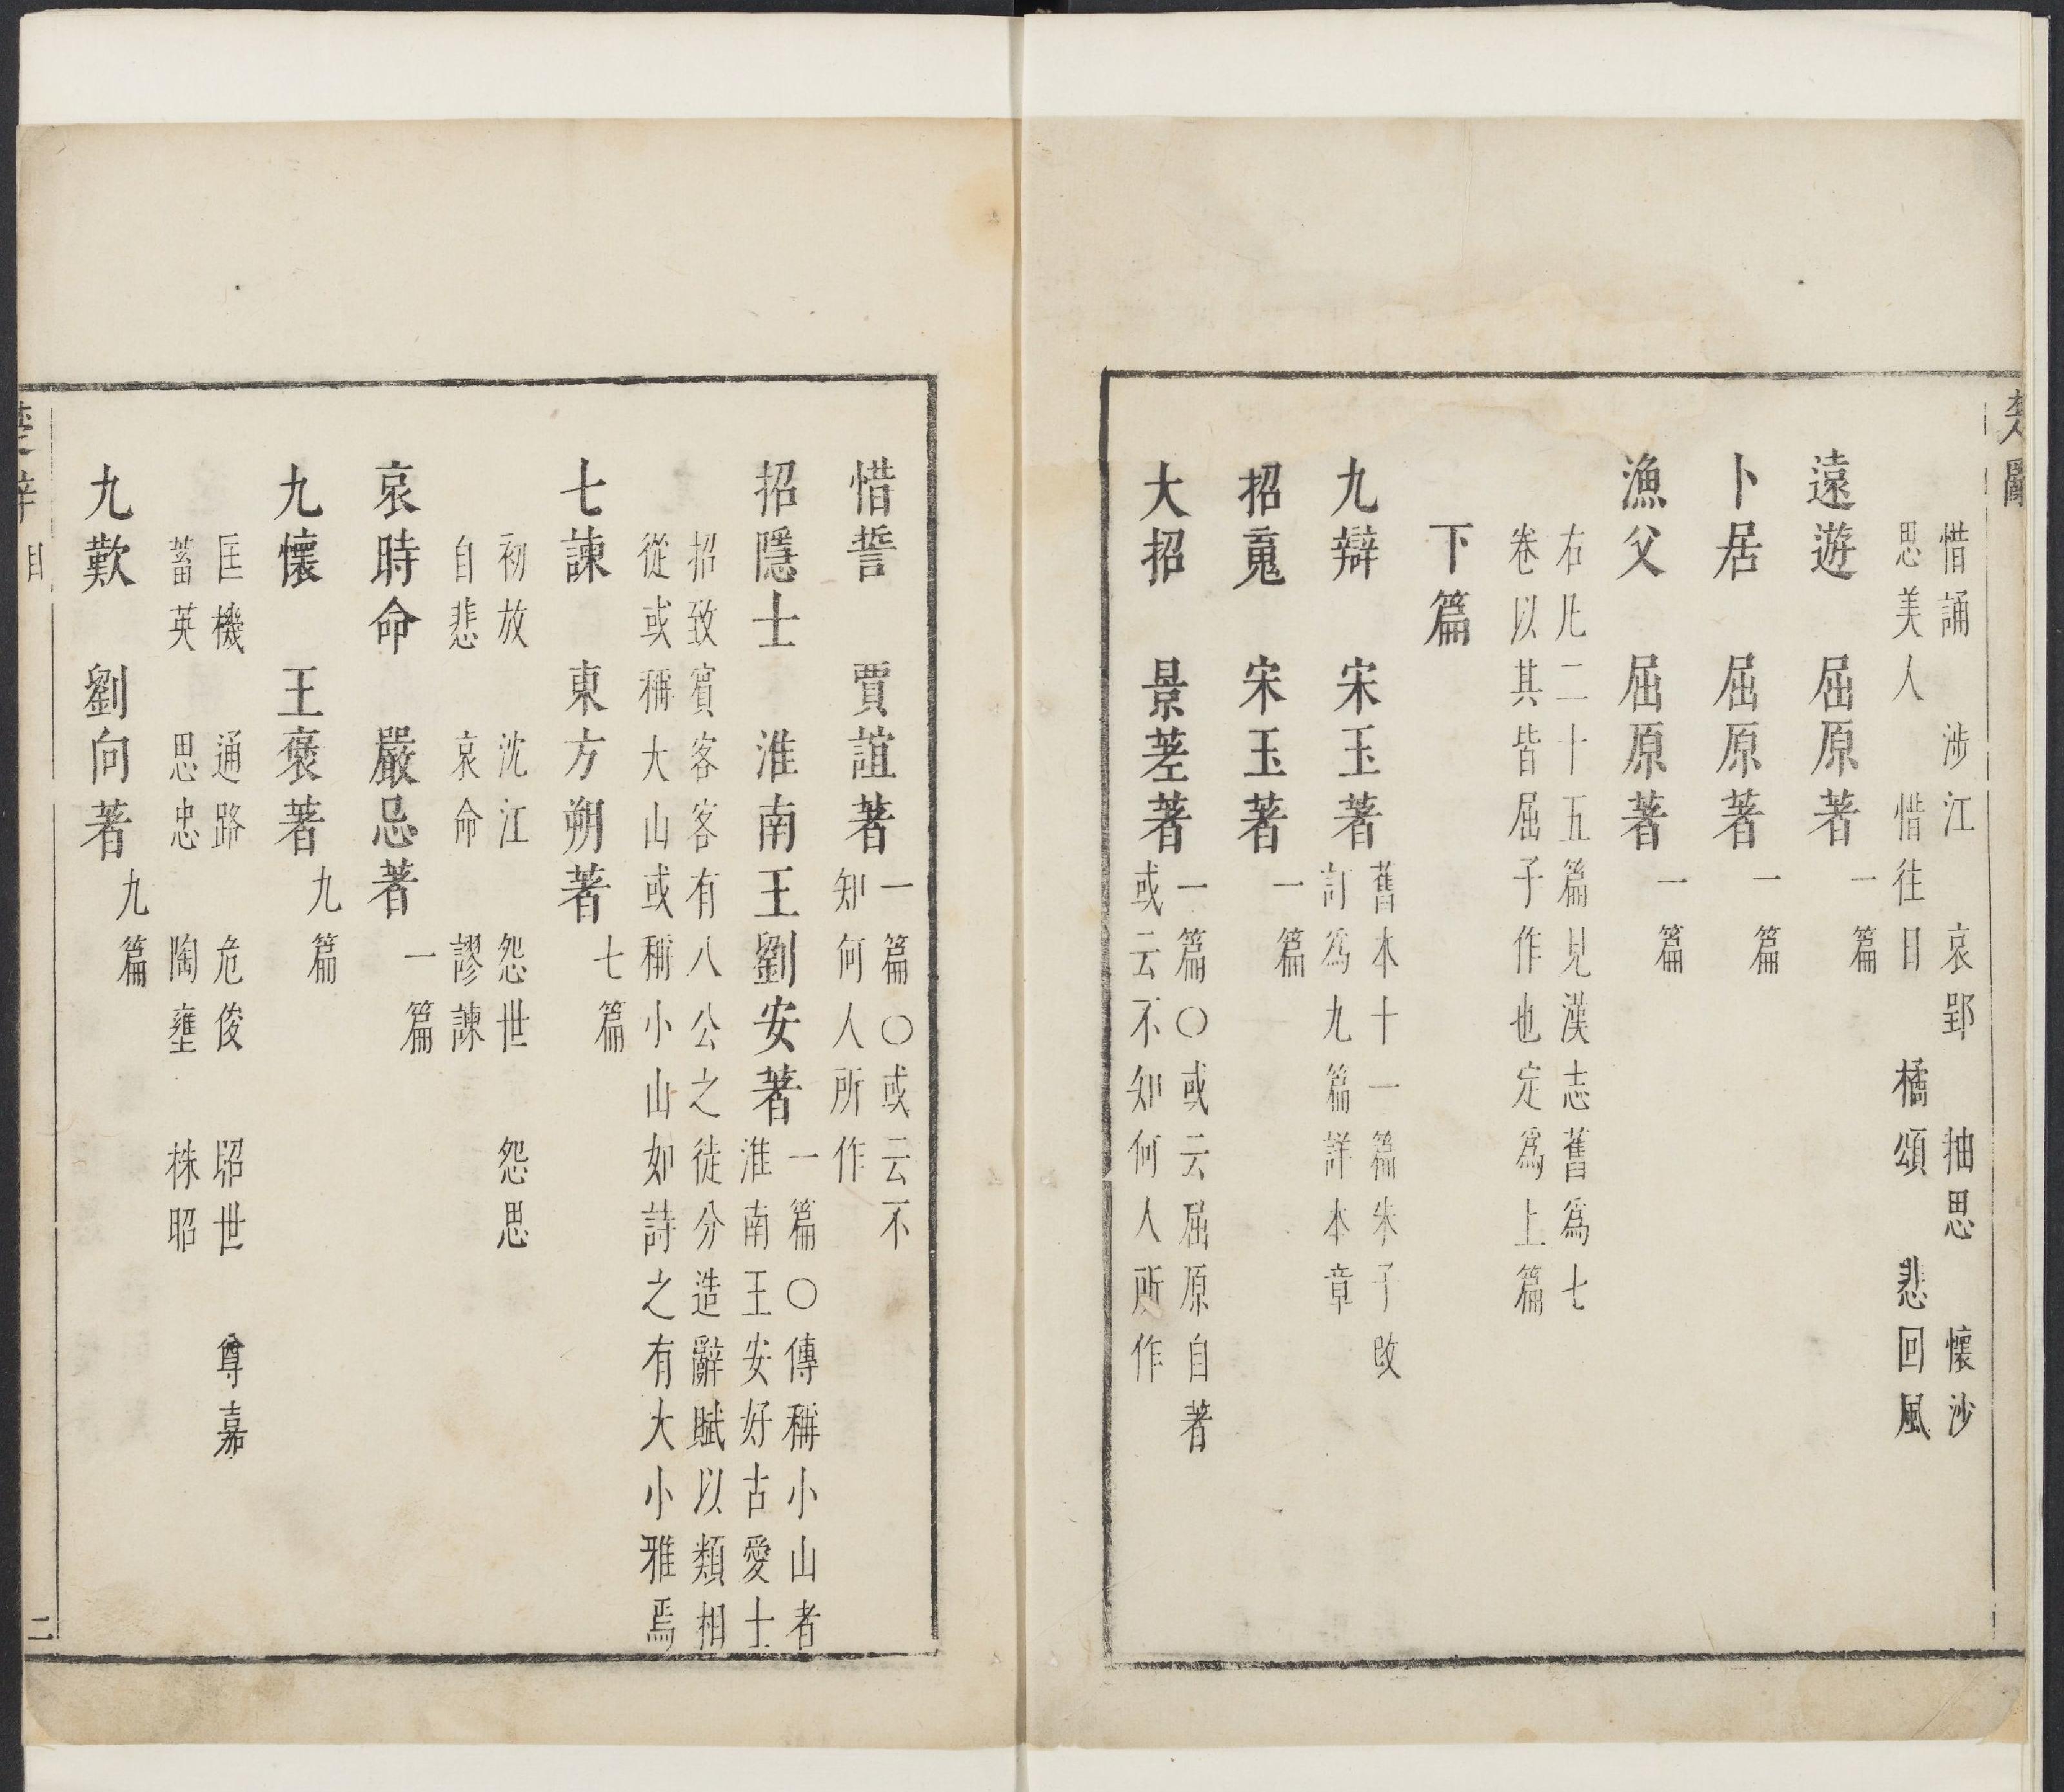 楚辭
惜誦 涉江 哀郢 抽思 懷沙
思美人 惜往日 橘頌 悲回風
遠遊 屈原著 一篇
卜居 屈原著 一篇
漁父 屈原著 一篇
右凡二十五篇見漢志舊爲七
卷以其皆屈子作也定爲上篇
下篇
九辯 宋玉著 舊本十一篇朱子改
訂爲九篇詳本章
招䰟 宋玉著 一篇
大招 景差著 一篇○或云屈原自著
或云不知何人所作
惜誓 賈誼著 一篇○或云不
知何人所作
招隱士 淮南王劉安著 一篇○傳稱小山者
淮南王安好古愛士
招致賓客客有八公之徒分造辭賦以類相
從或稱大山或稱小山如詩之有大小雅焉
七諫 東方朔著 七篇
初放 沈江 怨世 怨思
自悲 哀命 謬諫
哀時命 嚴忌著 一篇
九懷 王褒著 九篇
匡機 通路 危俊 昭世 尊嘉
蓄英 思忠 陶壅 株昭
九歎 劉向著 九篇
楚辭 目 二